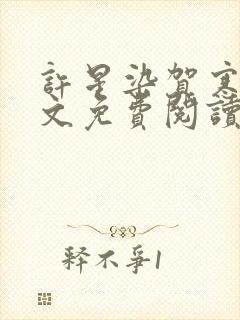 許星染賀寒
文免費閱讀
釋不爭1